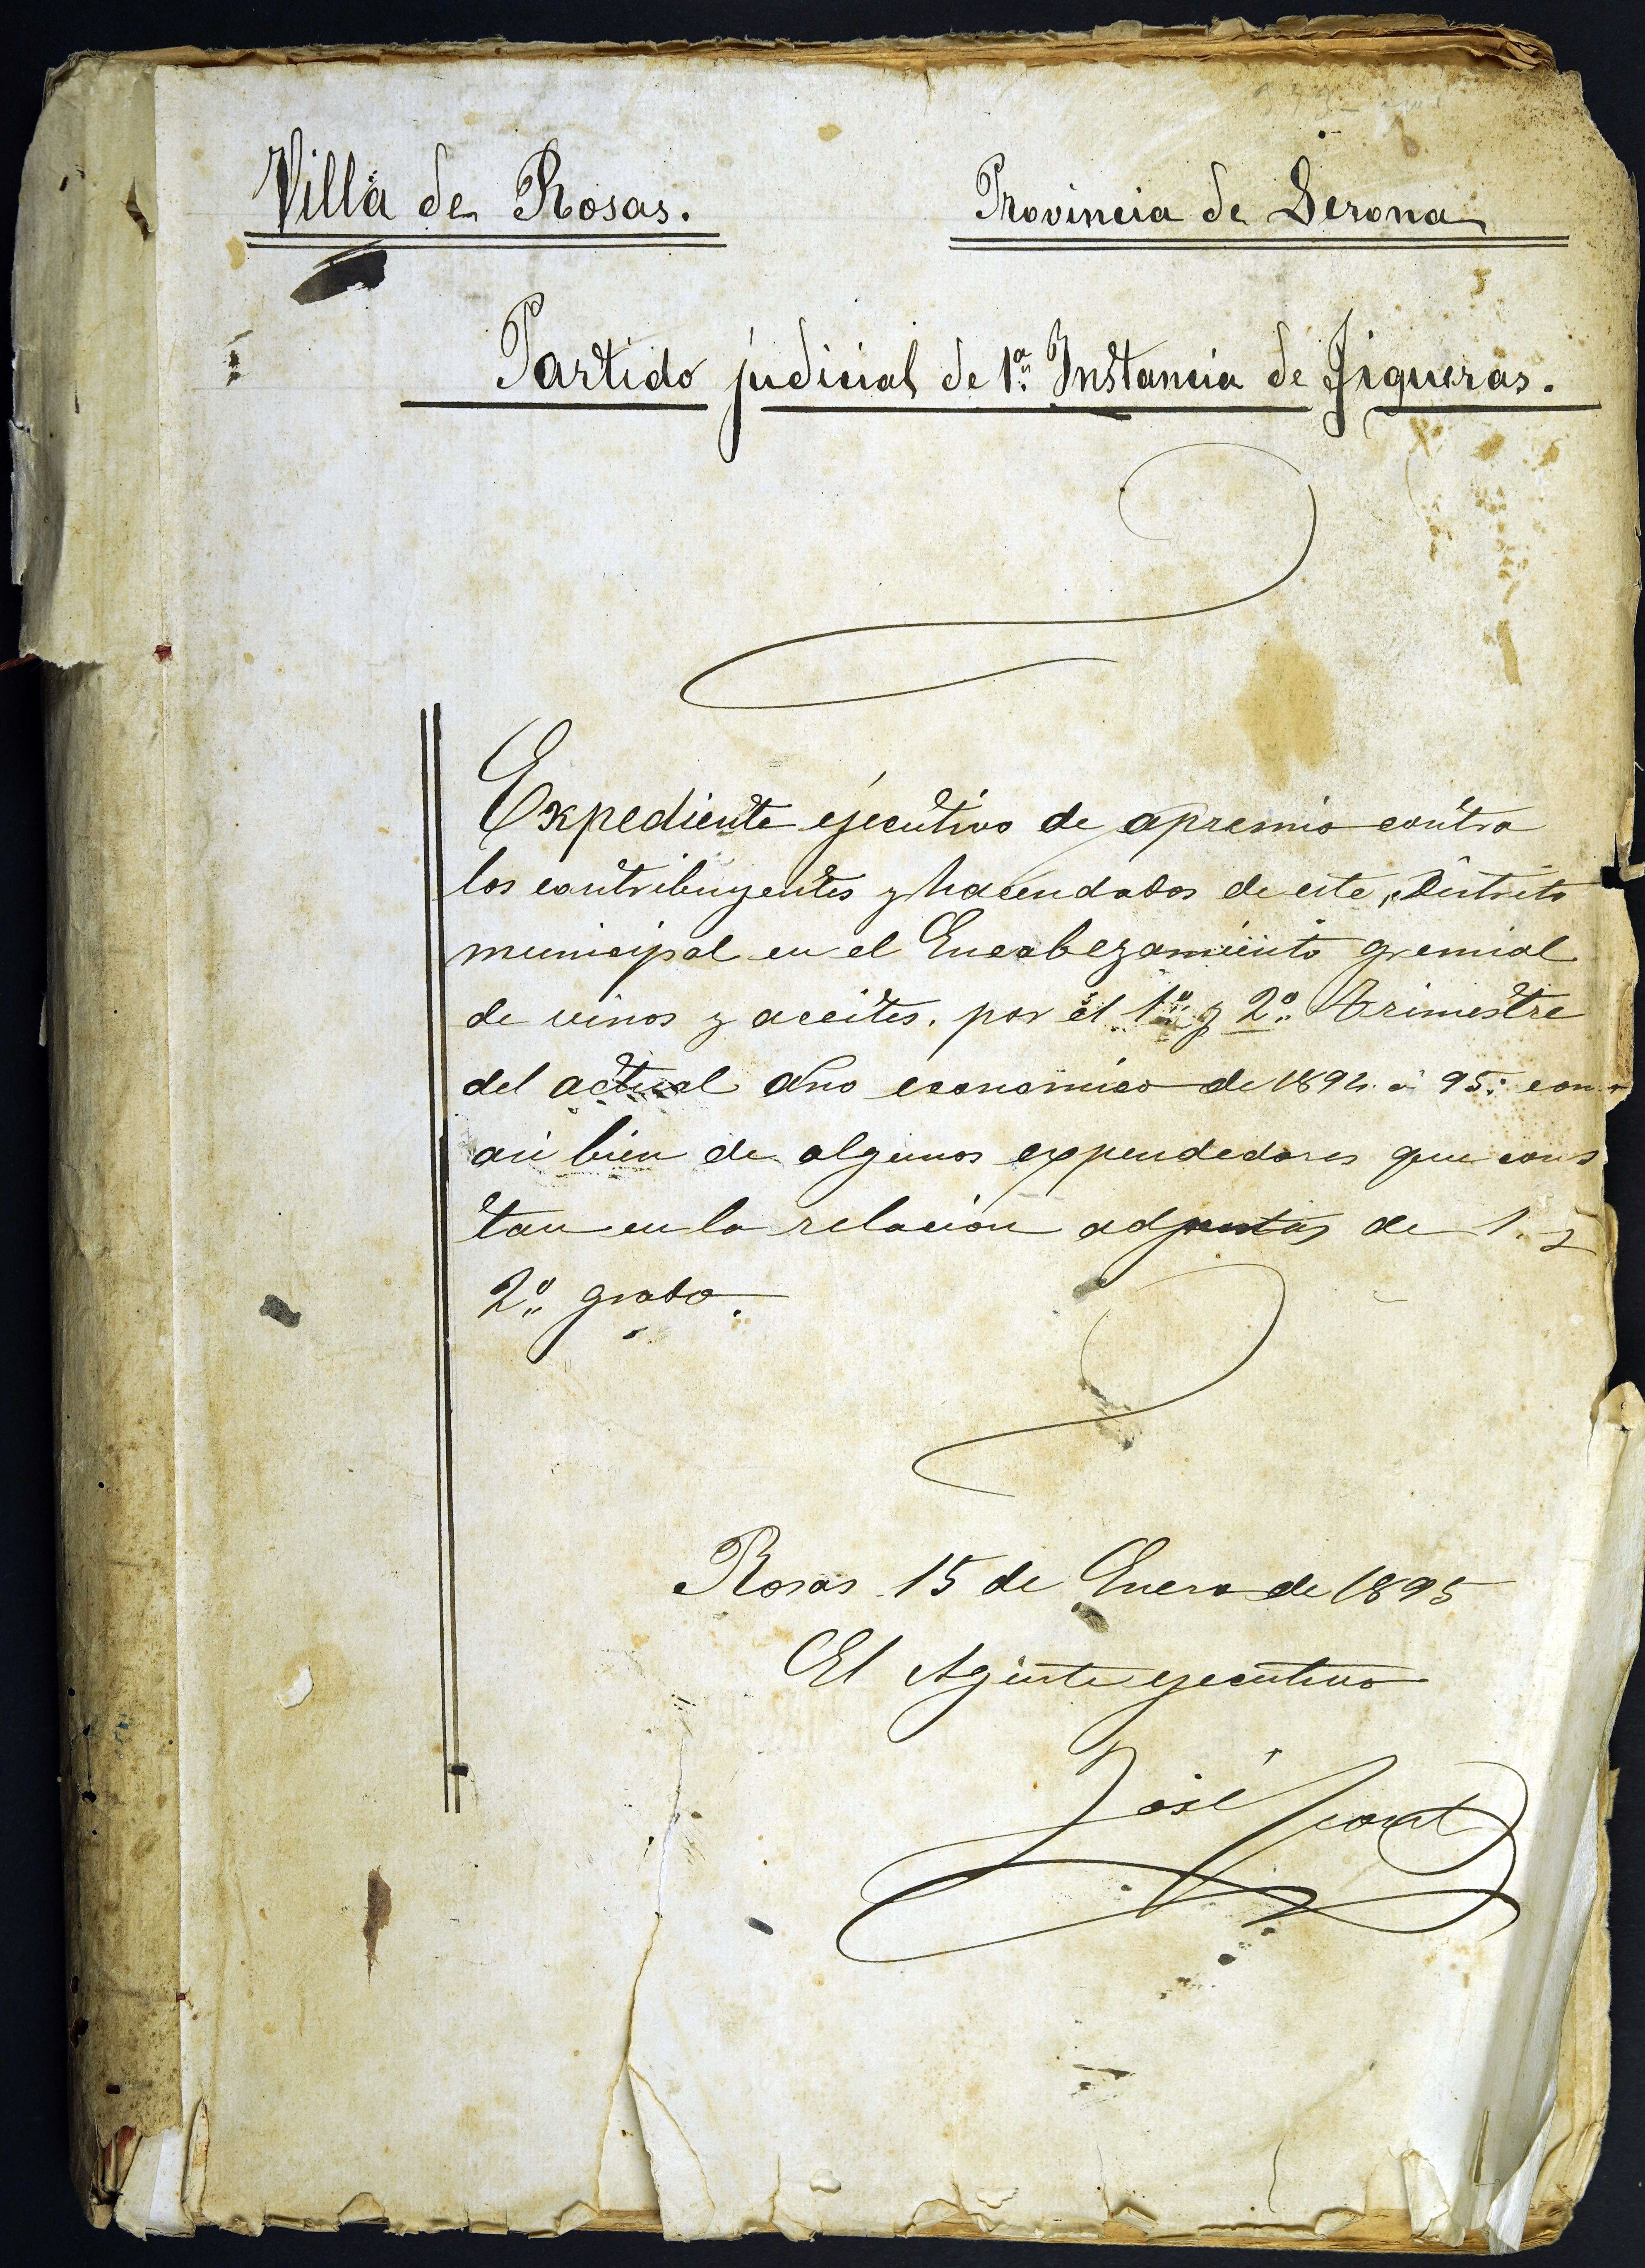 Villa de Rosas. Provincia de Gerona
Partido judicial de 1ª Instancia de Figueras.
Expediente ejecutivo de apremio contra
los contribuyentes y hacendados de este Distrito
municipal en el Encabezamiento gremial
de vinos y aceites, por el 1º y 2º Trimestre
del actual año economico de 1894 á 95; como
asi bien de algunos expendedores que cons
tan en la relación adjunta de 1. y
2º grado.
Rosas 15 de Enero de 1895
El Agente ejecutivo
José